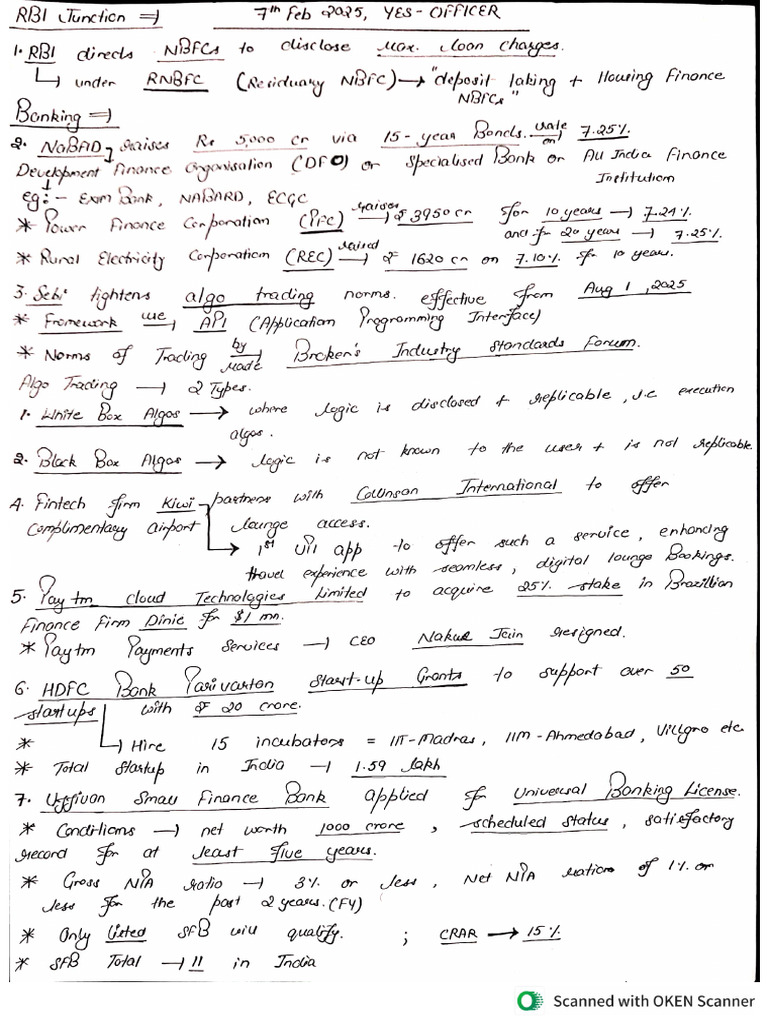 RBI Junction ⇒ 7th Feb 2025, YES-OFFICER
1. RBI directs NBFCs to disclose Max. loan charges.
↳ under RNBFC (Residuary NBFC) → "deposit taking + Housing Finance
NBFCs"
Banking ⇒
2. NaBAD raises Rs 5,000 cr via 15-year Bonds. rate on → 7.25%.
Development Finance Organisation (DFO) or Specialised Bank or All India Finance
Institution
eg:- Exim Bank, NABARD, ECGC
* Power Finance Corporation (PFC) raised → ₹ 3950 cr for 10 years → 7.21%
and for 20 year → 7.25%.
* Rural Electricity Corporation (REC) raised → ₹ 1620 cr on 7.10% for 10 year.
3. Sebi tightens algo trading norms. effective from Aug 1, 2025
* Framework use → API (Application Programming Interface)
* Norms of Trading by made → Broker's Industry Standards Forum.
Algo Trading → 2 Types.
1. White Box Algos → where logic is disclosed + replicable, i.e execution
algos.
2. Black Box Algos → logic is not known to the user + is not replicable.
4. Fintech firm Kiwi partners with Collinson International to offer
complimentary airport lounge access.
↳ 1st UPI app to offer such a service, enhancing
travel experience with seamless, digital lounge Bookings.
5. Paytm cloud Technologies Limited to acquire 25% stake in Brazillian
Finance Firm Dinie for $1 mn.
* Paytm Payments Services → CEO Nakul Jain resigned.
6. HDFC Bank Parivartan Start-up Grants to support over 50
startups with ₹ 20 crore.
* ↳ Hire 15 incubators = IIT-Madras, IIM-Ahmedabad, Villgro etc
* Total Startup in India → 1.59 lakh
7. Ujjivan Small Finance Bank applied for Universal Banking License.
* Conditions → net worth 1000 crore, scheduled status, satisfactory
record for at least five years.
* Gross NPA ratio → 3% or less, Net NPA ration of 1% or
less for the past 2 years. (FY)
* Only listed SFB will qualify. ; CRAR → 15%
* SFB Total → 11 in India
Scanned with OKEN Scanner